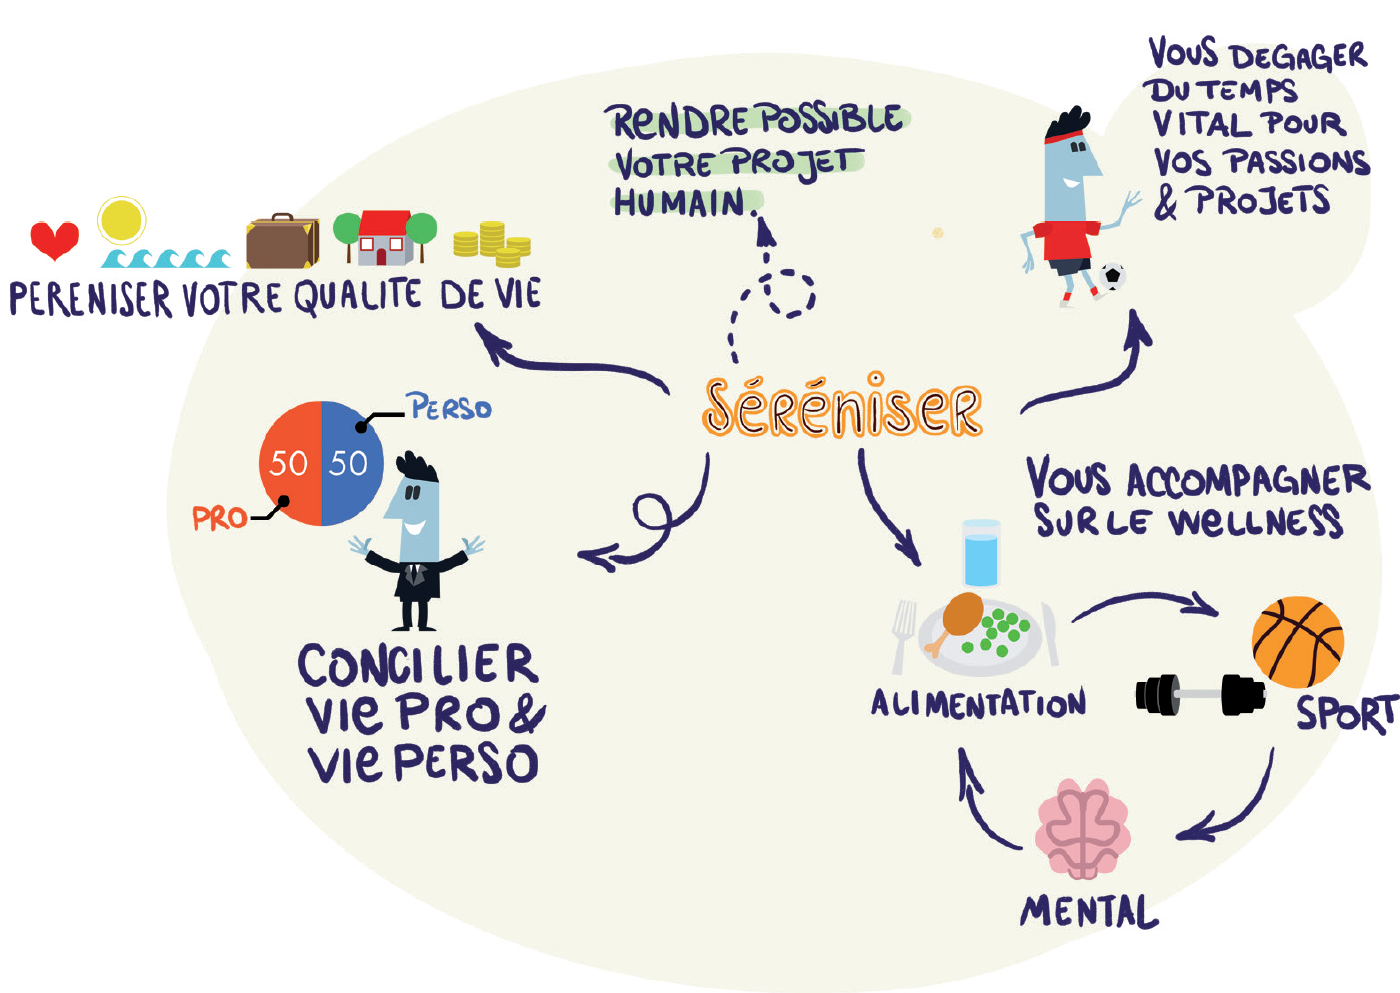 RENDRE POSSIBLE
VOTRE PROJET
HUMAIN.
VOUS DEGAGER
DU TEMPS
VITAL POUR
VOS PASSIONS
& PROJETS
PERENISER VOTRE QUALITE DE VIE
SÉRÉNISER
PERSO
50 50
PRO
CONCILIER
VIE PRO &
VIE PERSO
VOUS ACCOMPAGNER
SUR LE WELLNESS
ALIMENTATION
SPORT
MENTAL